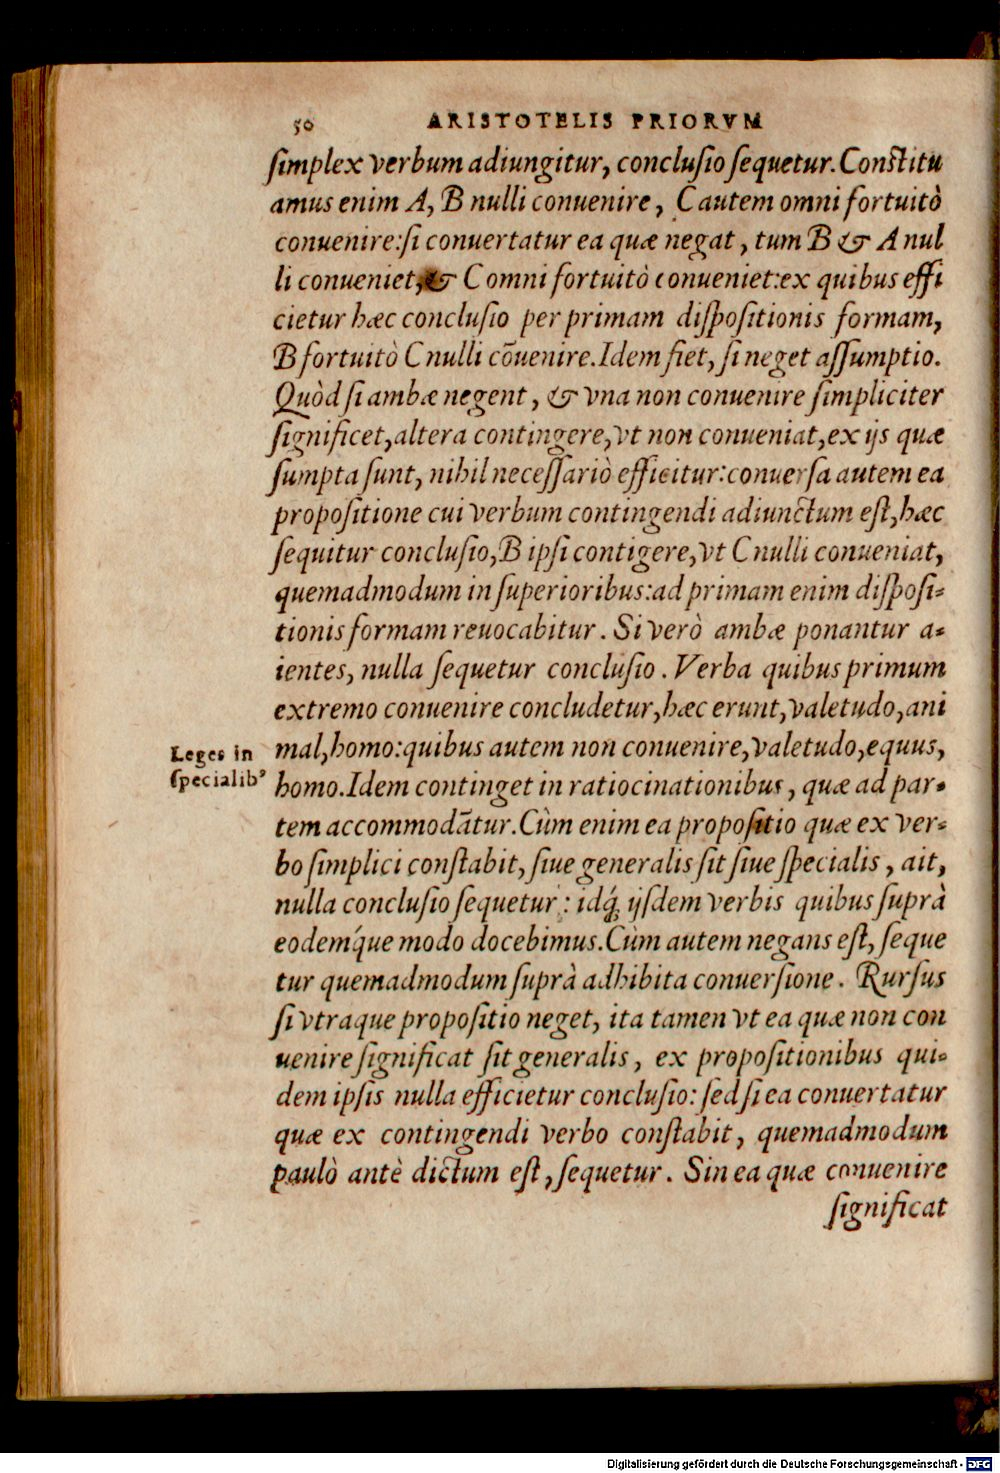 50 ARISTOTELIS PRIORVM
simplex verbum adiungitur, conclusio sequetur. Constitu
amus enim A, B nulli conuenire, C autem omni fortuitò
conuenire: si conuertatur ea quæ negat, tum B & A nul
li conueniet, & C omni fortuitò conueniet: ex quibus effi
cietur hæc conclusio per primam dispositionis formam,
B fortuitò C nulli cõuenire. Idem fiet, si neget assumptio.
Quòd si ambæ negent, & vna non conuenire simpliciter
significet, altera contingere, vt non conueniat, ex ijs quæ
sumpta sunt, nihil necessariò efficitur: conuersa autem ea
propositione cui verbum contingendi adiunctum est, hæc
sequitur conclusio, B ipsi contigere, vt C nulli conueniat,
quemadmodum in superioribus: ad primam enim disposi-
tionis formam reuocabitur. Si verò ambæ ponantur a-
ientes, nulla sequetur conclusio. Verba quibus primum
extremo conuenire concludetur, hæc erunt, valetudo, ani
Leges in
specialib⁹
mal, homo: quibus autem non conuenire, valetudo, equus,
homo. Idem continget in ratiocinationibus, quæ ad par-
tem accommodãtur. Cùm enim ea propositio quæ ex ver-
bo simplici constabit, siue generalis sit siue specialis, ait,
nulla conclusio sequetur: idq́; ijsdem verbis quibus suprà
eodeḿque modo docebimus. Cùm autem negans est, seque
tur quemadmodum suprà adhibita conuersione. Rursus
si vtraque propositio neget, ita tamen vt ea quæ non con
uenire significat sit generalis, ex propositionibus qui-
dem ipsis nulla efficietur conclusio: sed si ea conuertatur
quæ ex contingendi verbo constabit, quemadmodum
paulò antè dictum est, sequetur. Sin ea quæ conuenire
significat
Digitalisierung gefördert durch die Deutsche Forschungsgemeinschaft - DFG